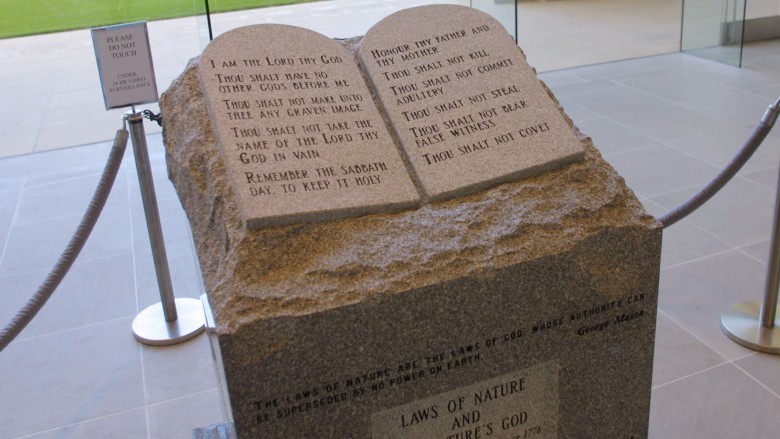 PLEASE
DO NOT
TOUCH
UNDER
24 HR VIDEO
SURVEILLANCE
I AM THE LORD THY GOD
THOU SHALT HAVE NO
OTHER GODS BEFORE ME
THOU SHALT NOT MAKE UNTO
THEE ANY GRAVEN IMAGE
THOU SHALT NOT TAKE THE
NAME OF THE LORD THY
GOD IN VAIN
REMEMBER THE SABBATH
DAY, TO KEEP IT HOLY
HONOUR THY FATHER AND
THY MOTHER
THOU SHALT NOT KILL
THOU SHALT NOT COMMIT
ADULTERY
THOU SHALT NOT STEAL
THOU SHALT NOT BEAR
FALSE WITNESS
THOU SHALT NOT COVET
THE LAWS OF NATURE ARE THE LAWS OF GOD, WHOSE AUTHORITY CAN
BE SUPERSEDED BY NO POWER ON EARTH
George Mason
LAWS OF NATURE
AND
GOD
1776